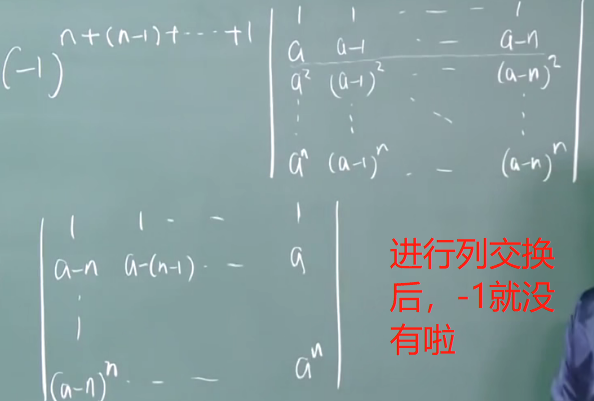 (-1)^{n+(n-1)+⋯+1} | 1 1 ⋯ 1 |
| a a-1 ⋯ a-n |
| a² (a-1)² ⋯ (a-n)² |
| ⋮ ⋮ ⋱ ⋮ |
| aⁿ (a-1)ⁿ ⋯ (a-n)ⁿ |
| 1 1 ⋯ 1 |
| a-n a-(n-1) ⋯ a |
| ⋮ |
| (a-n)ⁿ ⋯ aⁿ |
进行列交换
后，-1就没
有啦